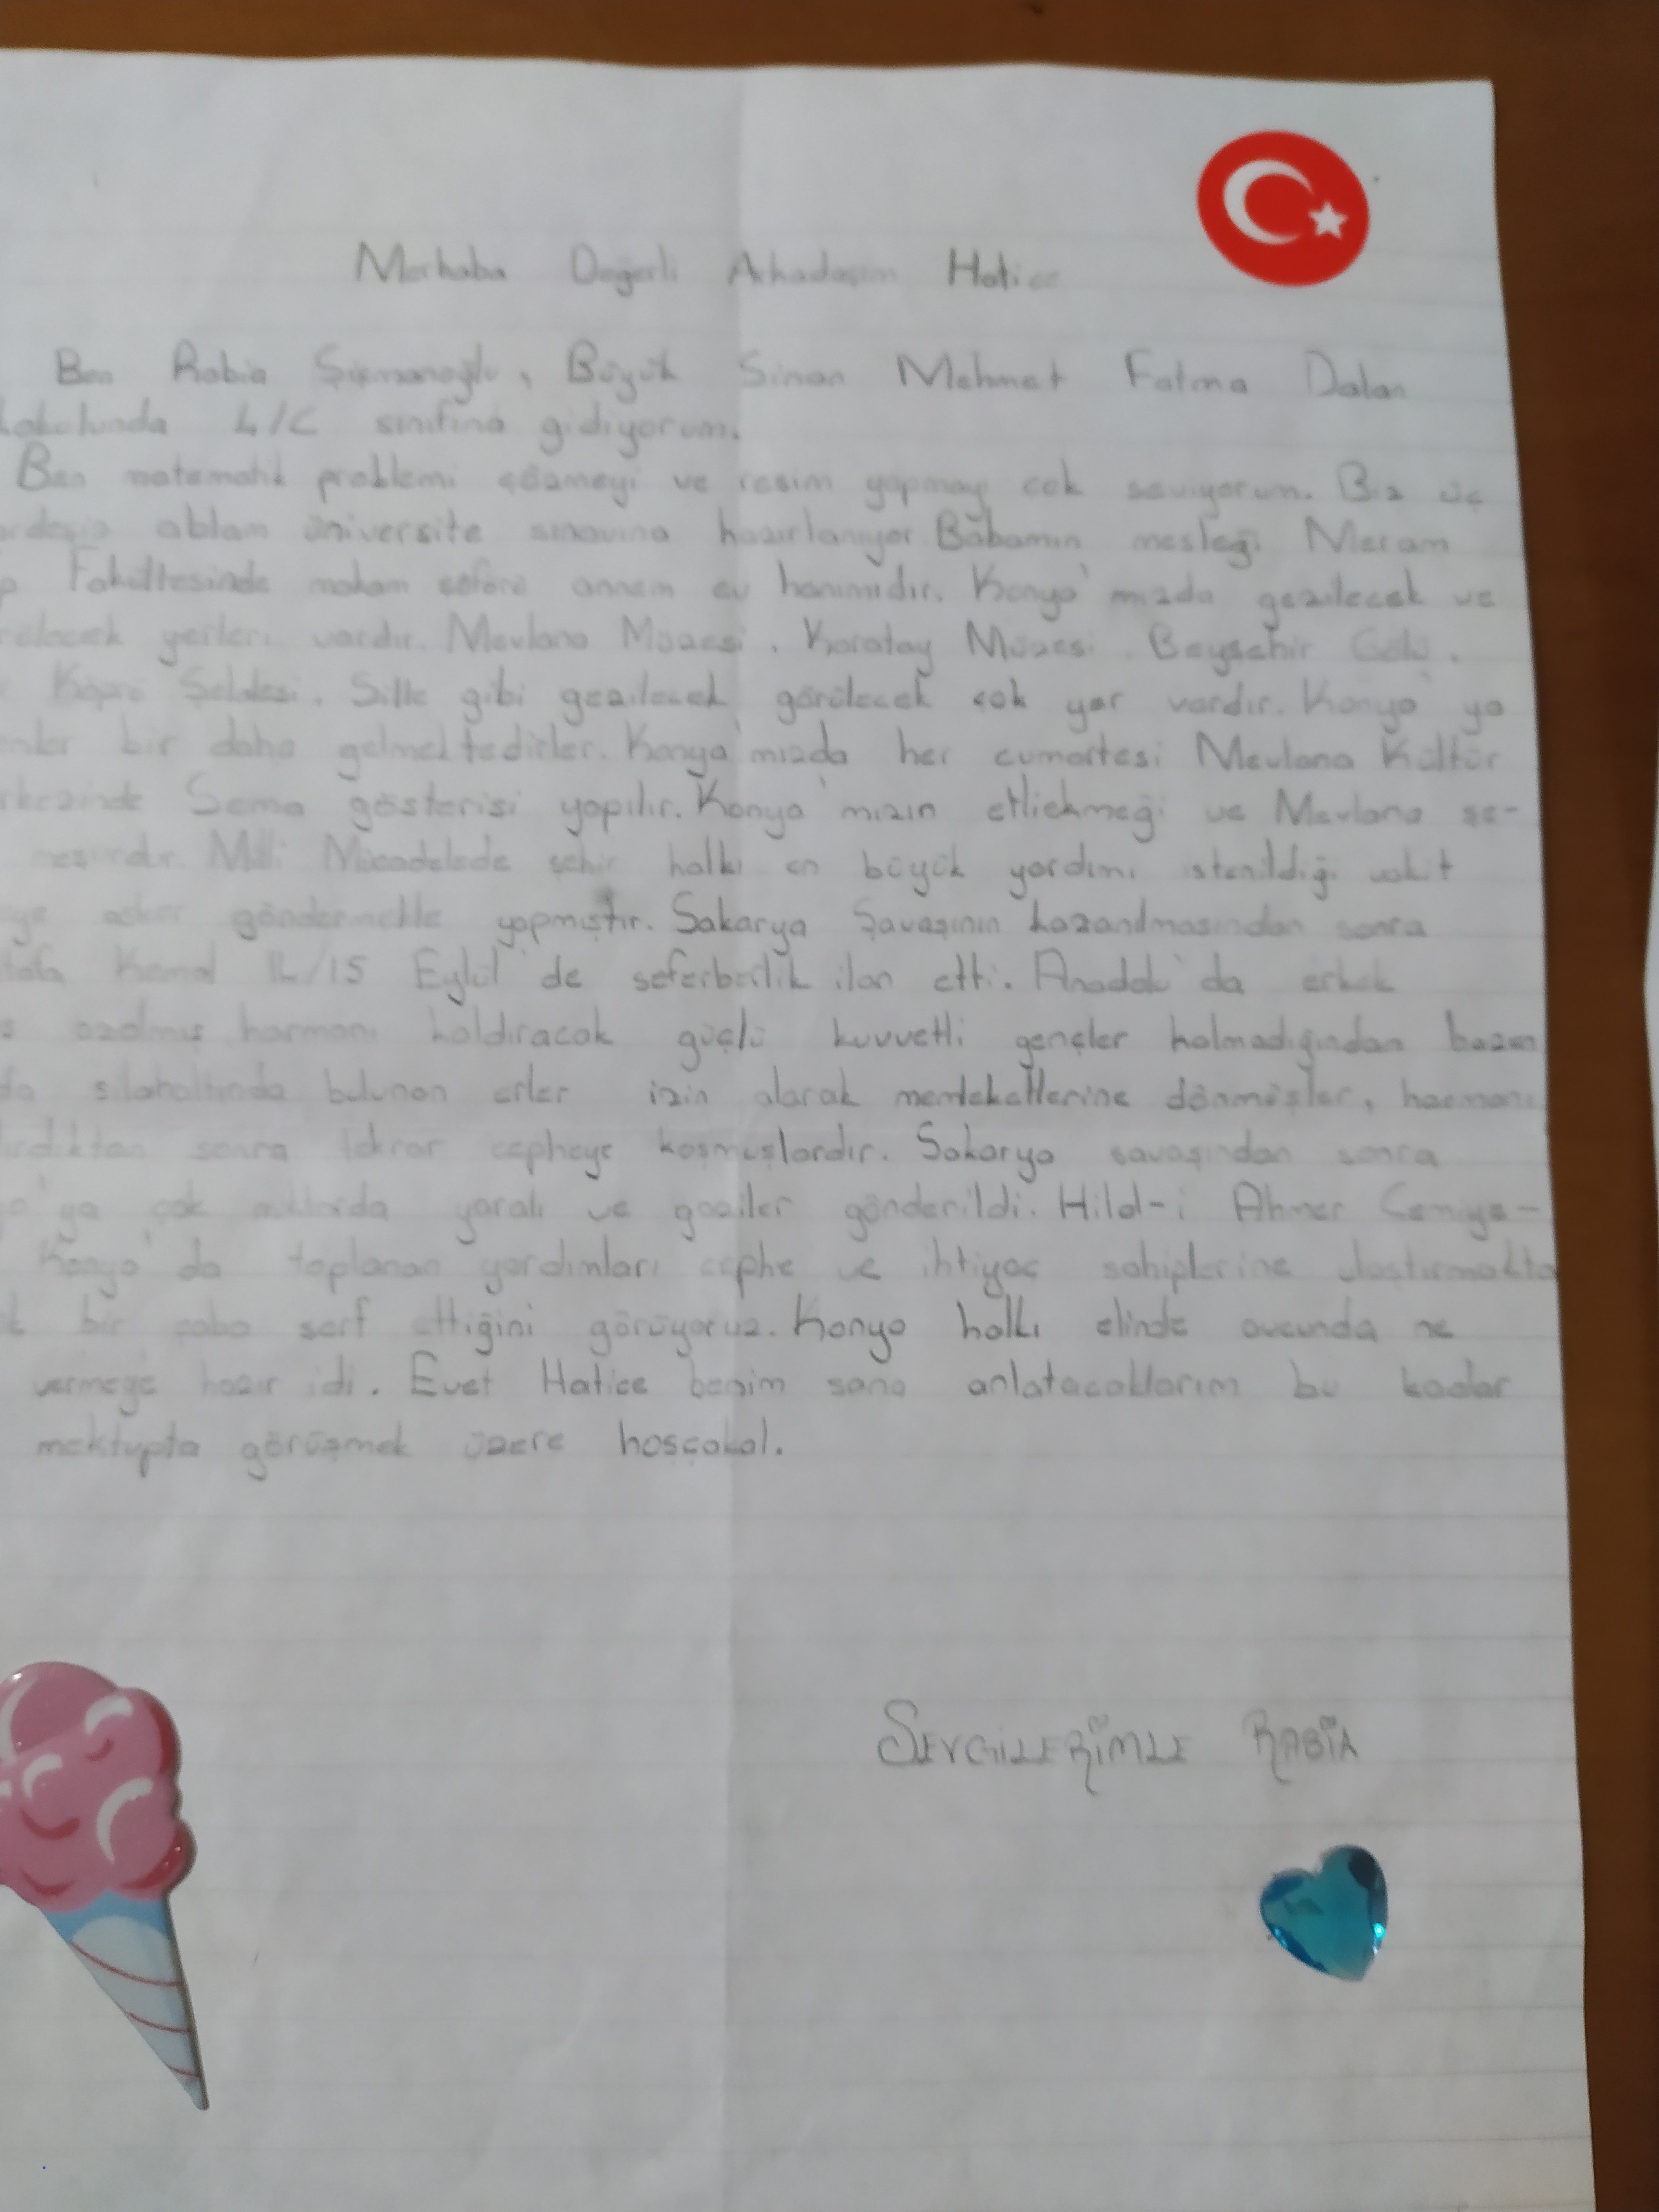 Merhaba Değerli Arkadaşım Hatice
Ben Rabia Şişmanoğlu, Büyük Sinan Mehmet Fatma Dalan
4/C sınıfına gidiyorum.
Ben matematik problemi çözmeyi ve resim yapmayı çok seviyorum. Biz üç
ablam üniversite sınavına hazırlanıyor Babamın mesleği Meram
Fakültesinde makam şoförü annem ev hanımıdır. Konya'mızda gezilecek ve
yerleri vardır. Mevlana Müzesi, Karatay Müzesi, Beyşehir Gölü,
Köprü Şelalesi, Sille gibi gezilecek görülecek çok yer vardır. Konya'ya
bir daha gelmektedirler. Konya'mızda her cumartesi Mevlana Kültür
Sema gösterisi yapılır. Konya'mızın etliekmeği ve Mevlana şe-
Milli Mücadelede şehir halkı en büyük yardımı istenildiği vakit
asker göndermekle yapmıştır. Sakarya Savaşının kazanılmasından sonra
Kemal 14/15 Eylül'de seferberlik ilan etti. Anadolu'da erkek
azalmış harmanı kaldıracak güçlü kuvvetli gençler kalmadığından bazen
silahaltında bulunan erler izin alarak memleketlerine dönmüşler, harmanı
sonra tekrar cepheye koşmuşlardır. Sakarya savaşından sonra
'ya çok miktarda yaralı ve gaziler gönderildi. Hilal-i Ahmer Cemiye-
Konya'da toplanan yardımları cephe ve ihtiyaç sahiplerine ulaştırmakta
bir çaba sarf ettiğini görüyoruz. Konya halkı elinde avucunda ne
vermeye hazır idi. Evet Hatice benim sana anlatacaklarım bu kadar
mektupta görüşmek üzere hoşçakal.
SEVGİLERİMLE RABİA